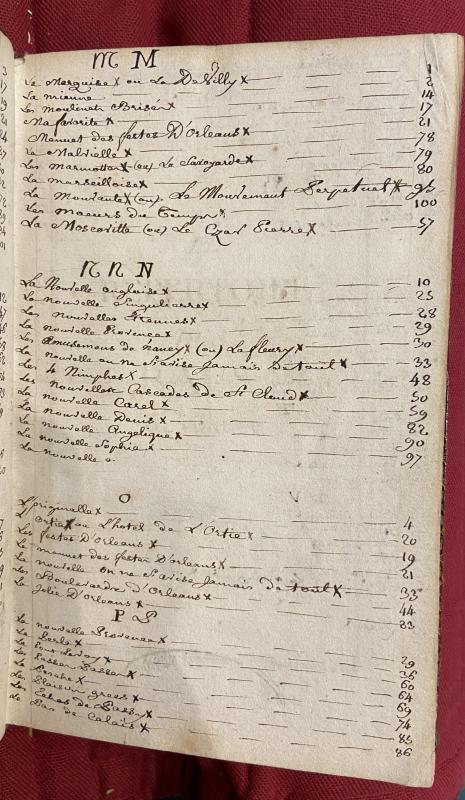 M M
La Marquise x ou La DeVilly x 1
La mienne 2
Les moulinets Brisés x 14
Ma favorite x 17
Menuet des festes D'orleans x 21
La Malvielle x 78
Les marmottes x (ou) La Savoyarde x 79
La marseilloise x 80
La Mourante x (ou). Le Mouvemant Perpetuel x 95
Les moeurs du temps x 100
La Moscovitte (ou) Le Czar Pierre x 57
N n N
La Nouvelle angloise x 10
La nouvelle Singulierre x 25
Les nouvelles Etrennes x 28
La nouvelle Provence x 29
Les Amusemens de nancy x (ou) La fleury x 30
La nouvelle on ne s'avise Jamais de tout x 33
Les 4 Nimphes x 48
Les nouvelles Cascades de St Cloud x 50
La nouvelle Carel x 59
La nouvelle Denis x 82
La nouvelle Angelique x 90
La nouvelle Sophie x 97
La nouvelle
O
L'originalle x 4
L'Ortie x ou L'hotel de L'Ortie x 20
Les festes D'orleans x 19
Le menuet des festes D'orleans x 21
La nouvelle on ne s'avise Jamais de tout x 33
Les Boulevards D'orleans x 44
La Jolie D'orleans x 83
P P
La nouvelle Provence x 29
La Perle x 36
Le Pont Levoy x 60
Les Passes Passes x 64
La Perche x 69
Les Plaisirs grecs x 74
Les Echos de Passy x 85
Le Pas de Calais x 86